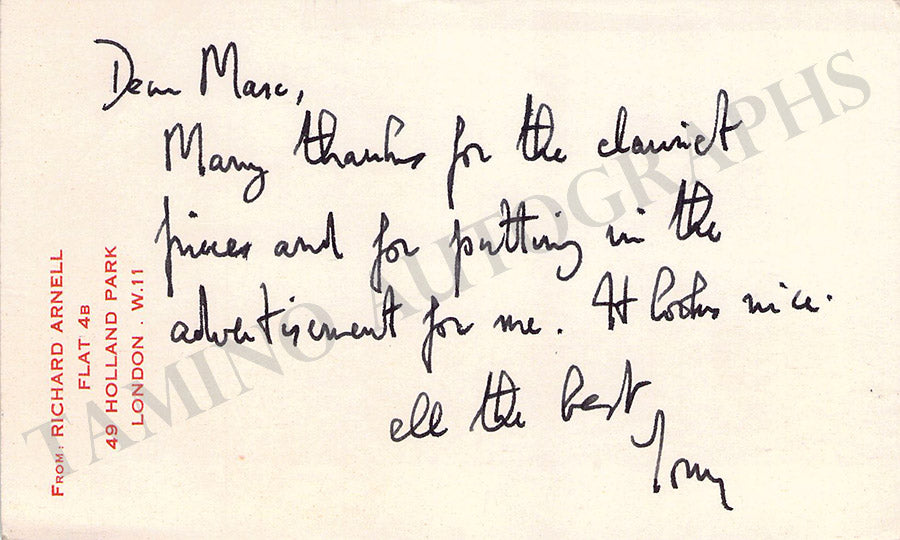 Dear Marc,
Many thanks for the clarinet
pieces and for putting in the
advertisement for me. It looks nice.
all the best
Tony
FROM: RICHARD ARNELL
FLAT 4B
49 HOLLAND PARK
LONDON . W.11
TAMINO AUTOGRAPHS